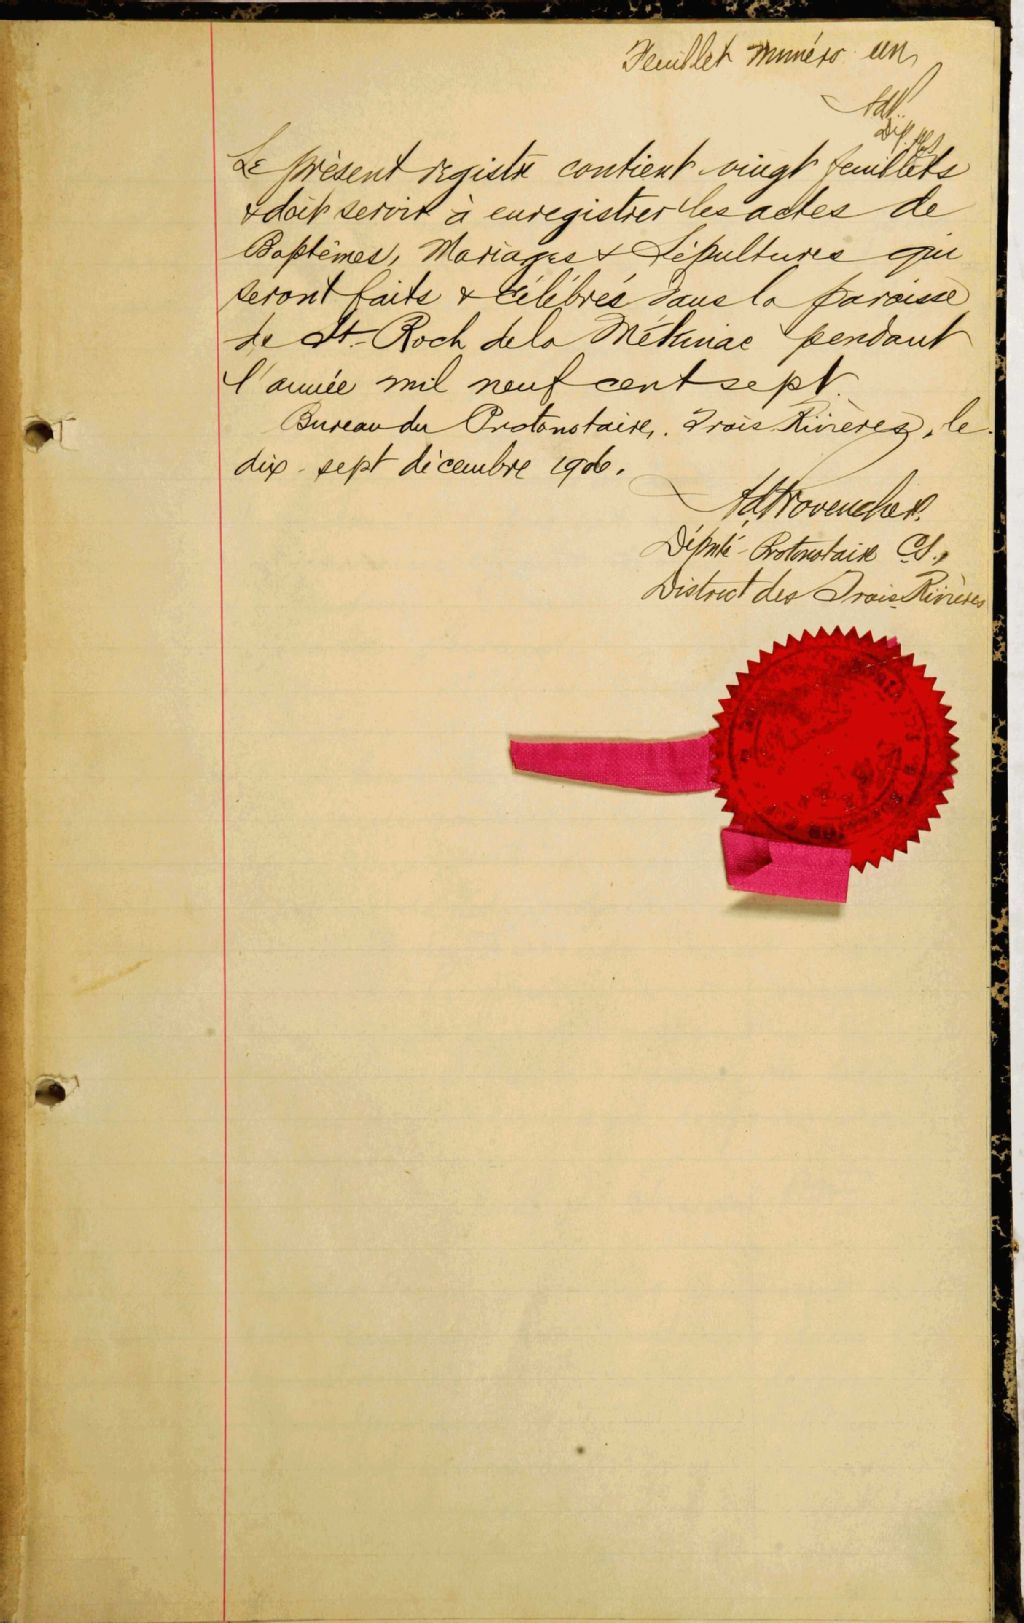 Feuillet numéro un
AdP.
Dép. P.C.S.
Le présent registre contient vingt feuillets
& doit servir à enregistrer les actes de
Baptêmes, Mariages & Sépultures qui
seront faits & célébrés dans la paroisse
de St-Roch de la Mékinac pendant
l'année mil neuf cent sept.
Bureau du Protonotaire, Trois Rivières, le
dix-sept décembre 1906.
Ad. Provencher.
Député-Protonotaire C.S.,
District des Trois-Rivières